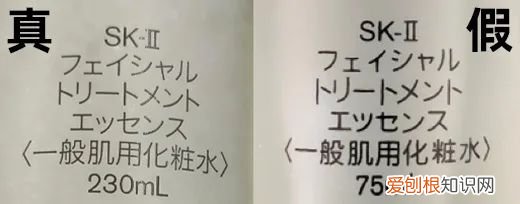 真
SK-Ⅱ
フェイシャル
トリートメント
エッセンス
〈一般肌用化粧水〉
230mL
假
SK-Ⅱ
フェイシャル
トリートメント
エッセンス
〈一般肌用化粧水〉
75
爱刨根知识网